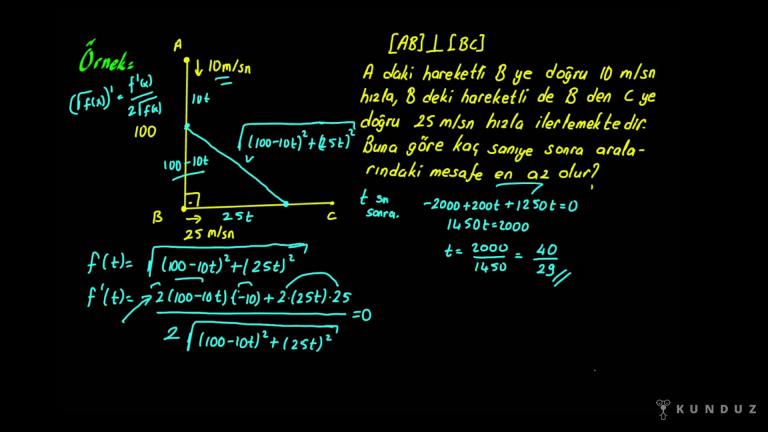 Örnek:
(√f(x))' = f'(x) / 2√f(x)
A
↓ 10m/sn
10t
100
100-10t
√(100-10t)²+(25t)²
B
→
25t
C
25 m/sn
[AB]⊥[BC]
A daki hareketli B ye doğru 10 m/sn
hızla, B deki hareketli de B den C ye
doğru 25 m/sn hızla ilerlemektedir.
Buna göre kaç saniye sonra arala-
rındaki mesafe en az olur?
t sn
sonra.
-2000+200t+1250t=0
1450t=2000
t= 2000/1450 = 40/29
f(t)= √(100-10t)²+(25t)²
f'(t)= 2(100-10t)(-10)+2.(25t).25 / 2√(100-10t)²+(25t)² =0
KUNDUZ